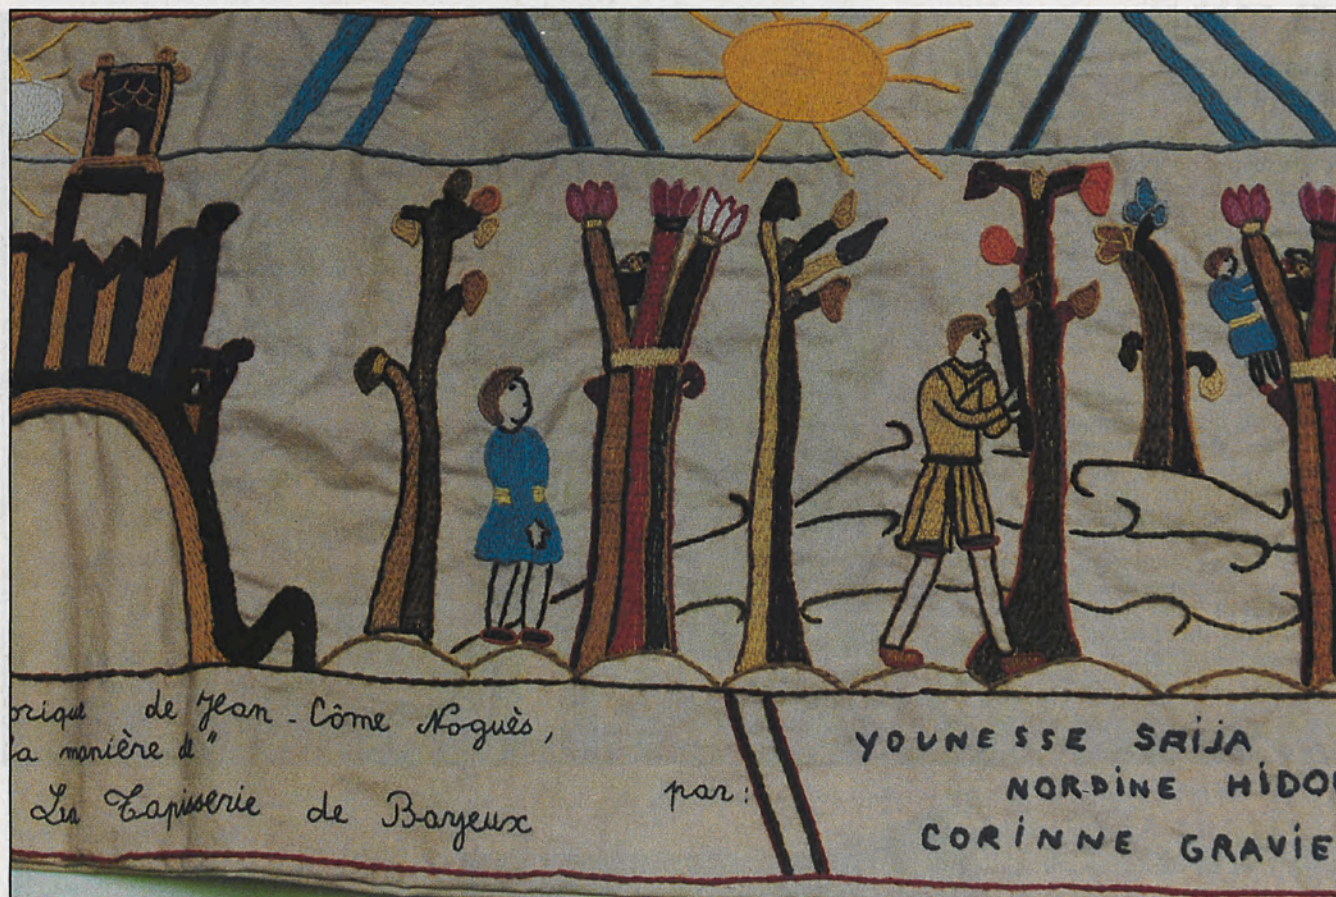 orique de Jean-Côme Noguès,
la manière de "
La Tapisserie de Bayeux
par:
YOUNESSE SRIJA
NORDINE HIDOU
CORINNE GRAVIE